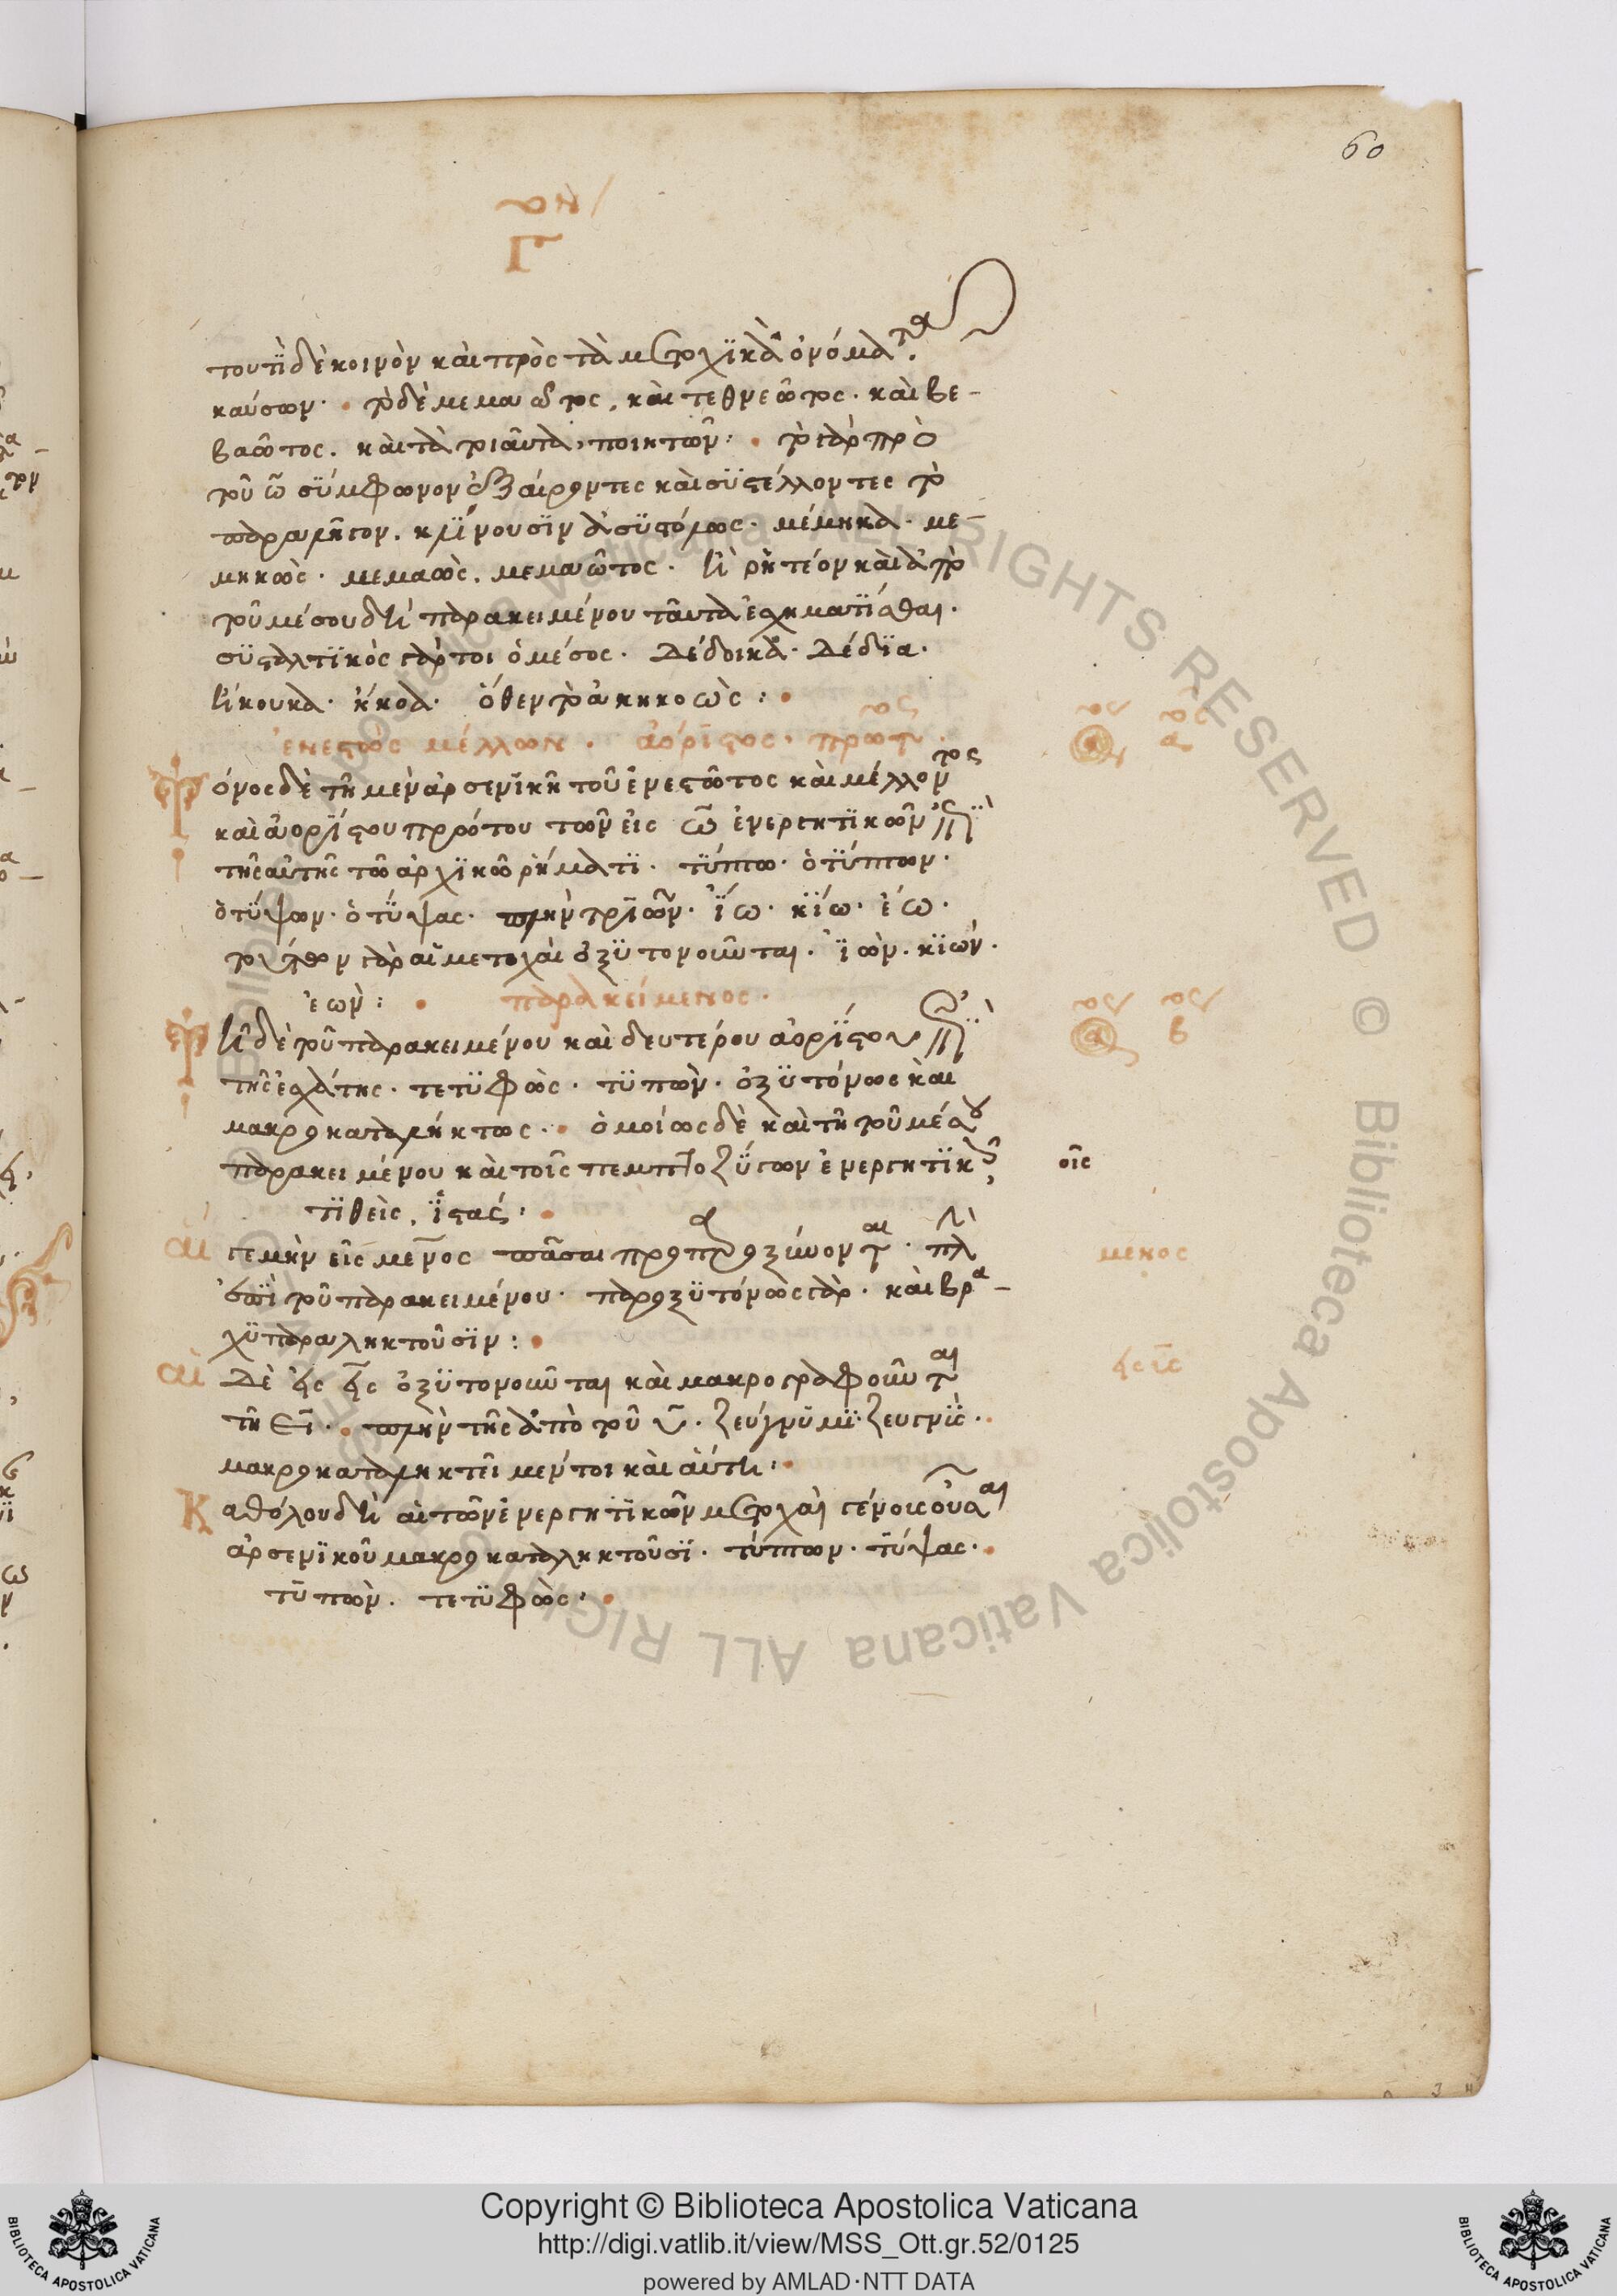 60
τον/
Γ
τουτὶ δὲ κοινὸν καὶ πρὸς τὰ μετοχϊκὰ ὀνόματα.
καύσων· τὸ δὲ μεμαῶτος, καὶ τεθνεῶτος. καὶ βε-
βαῶτος. καὶ τὰ τοιαῦτα, ποιητῶν: τὸ γὰρ πρὸ
τοῦ ω σύμφωνον ἐξαίροντες καὶ συστέλλοντες τὸ
παραλῆγον. κλίνουσιν ἀσυστόλως. μέμηκα. με-
μηκὼς. μεμαὼς. μεμαῶτος. ἢ ῥητέον καὶ ἀπὸ
τοῦ μέσου δὴ παρακειμένου ταῦτα ἐσχηματίσθαι.
συσταλτϊκὸς γάρ τοι ὁ μέσος. δέδοικα. δέδϊα.
ἤκουκα. ἤκοα. ὅθεν τὸ ἀκηκοὼς:
ἐνεστὼς μέλλων. ἀόριστος. πρῶτος.
Τόνος δὲ τῆ μὲν ἀρσενϊκῆ τοῦ ἐνεστῶτος καὶ μέλλοντος
καὶ ἀορίστου πρότου τῶν εἰς ω ἐνεργητϊκῶν ἐπὶ
τῆς αὐτῆς τῶ ἀρχϊκῶ ῥήματϊ. τύπτω. ὁ τύπτων.
ὁ τύψων. ὁ τύψας. πλὴν τριῶν. ἴω. κίω. ἔω.
τούτων γὰρ αἱ μετοχαὶ ὀξυτονοῦνται. ἰὼν. κϊών.
ἐὼν: παρακείμενος.
Τῆ δὲ τοῦ παρακειμένου καὶ δευτέρου ἀορίστου ἐπὶ
τῆς ἐσχάτης. τετυφὼς. τυπὼν. ὀξυτόνως καὶ
μακροκαταλήκτως. ὁμοίως δὲ καὶ τῆ τοῦ μέσου
παρακειμένου καὶ τοῖς πεμπτοζύγων ἐνεργητϊκοῖς
οῖς
τϊθεὶς. ἱστάς.
αἵ γε μὴν εἰς μενος πᾶσαι προπαροξύνονται. πλὴν
ἐπὶ τοῦ παρακειμένου. παροξυτόνως γὰρ. καὶ βρα-
χυπαραληκτοῦσϊν:
αἱ δὲ εἰς εις ὀξυτονοῦνται καὶ μακρογραφοῦνται
τῆ ει. πλὴν τῆς ἀπὸ τοῦ υ. ζεύγνυμϊ. ζευγνὺς.
μακροκαταληκτεῖ μέντοι καὶ αὐτη.
Καθόλου δὴ αἱ τῶν ἐνεργητϊκῶν μετοχαὶ γένους οὖσαι
ἀρσενϊκοῦ μακροκαταληκτοῦσϊ. τύπτων. τύψας.
τυπὼν. τετυφὼς.
μενος
Copyright © Biblioteca Apostolica Vaticana
http://digi.vatlib.it/view/MSS_Ott.gr.52/0125
powered by AMLAD·NTT DATA
BIBLIOTECA APOSTOLICA VATICANA
BIBLIOTECA APOSTOLICA VATICANA
© Biblioteca Apostolica Vaticana ALL RIGHTS RESERVED © Biblioteca Apostolica Vaticana ALL RIGHTS RESERVED